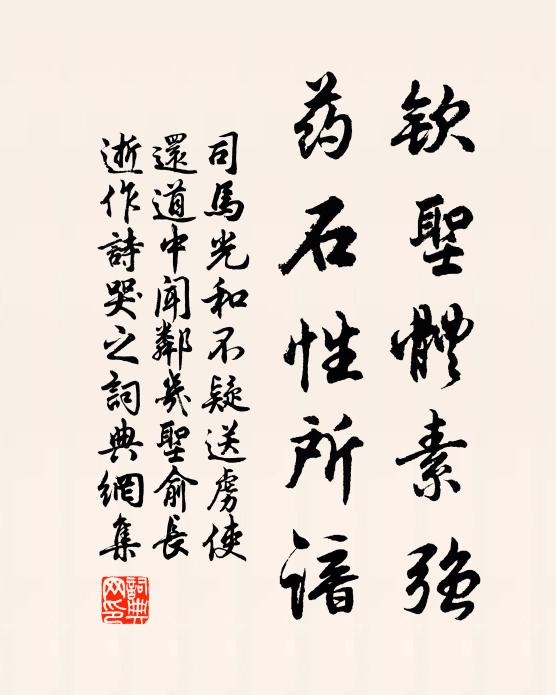 欽聖體素強
药石性所谙
司馬光和不疑送虜使
還道中闻鄰幾聖俞長
逝作詩哭之詞典網集
詞典網印